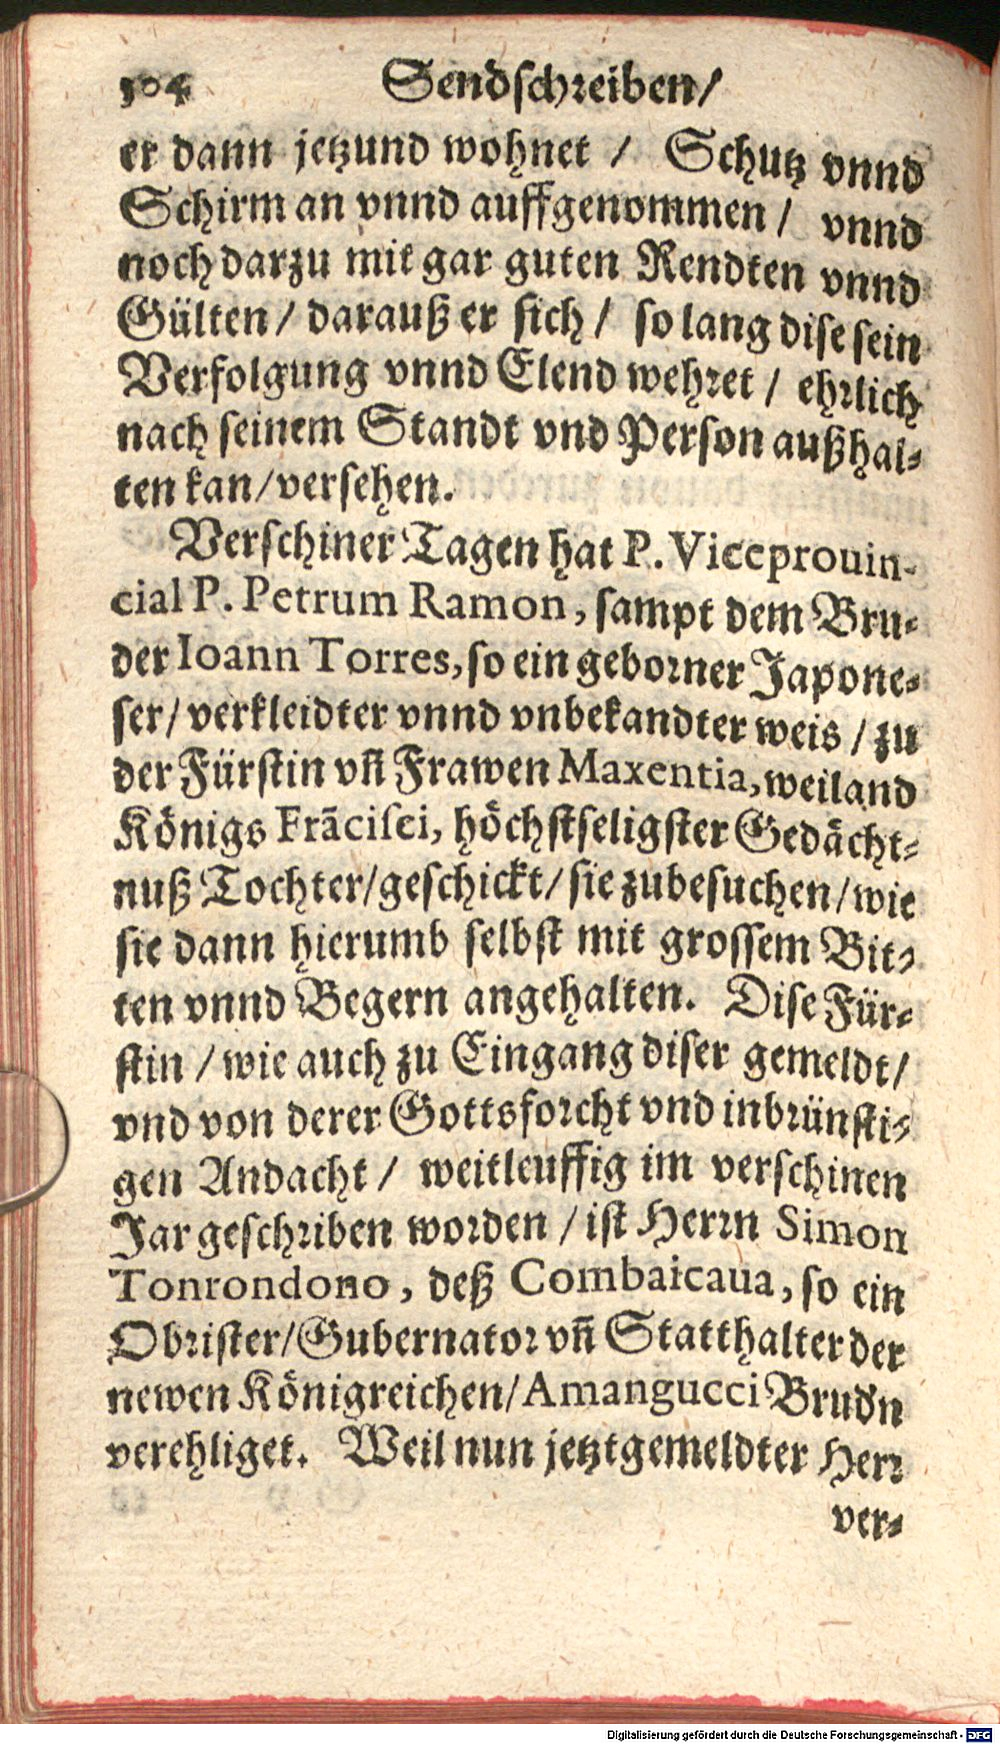 104 Sendschreiben/
er dann jetzund wohnet / Schutz vnnd
Schirm an vnnd auffgenommen / vnnd
noch darzu mit gar guten Rendten vnnd
Gülten / darauß er sich / so lang dise sein
Verfolgung vnnd Elend wehret / ehrlich
nach seinem Standt vnd Person außhal-
ten kan/versehen.
Verschiner Tagen hat P. Viceprouin-
cial P. Petrum Ramon, sampt dem Bru-
der Ioann Torres, so ein geborner Japone-
ser/ verkleidter vnnd vnbekandter weis / zu
der Fürstin vñ Frawen Maxentia, weiland
Königs Frãcisci, höchstseligster Gedächt-
nuß Tochter/geschickt/ sie zubesuchen/wie
sie dann hierumb selbst mit grossem Bit-
ten vnnd Begern angehalten. Dise Für-
stin / wie auch zu Eingang diser gemeldt/
vnd von derer Gottsforcht vnd inbrünsti-
gen Andacht / weitleuffig im verschinen
Jar geschriben worden / ist Herrn Simon
Tonrondono, deß Combaicaua, so ein
Obrister/Gubernator vñ Statthalter der
newen Königreichen/Amangucci Brudn
verehliget. Weil nun jetztgemeldter Herr
ver-
Digitalisierung gefördert durch die Deutsche Forschungsgemeinschaft - DFG